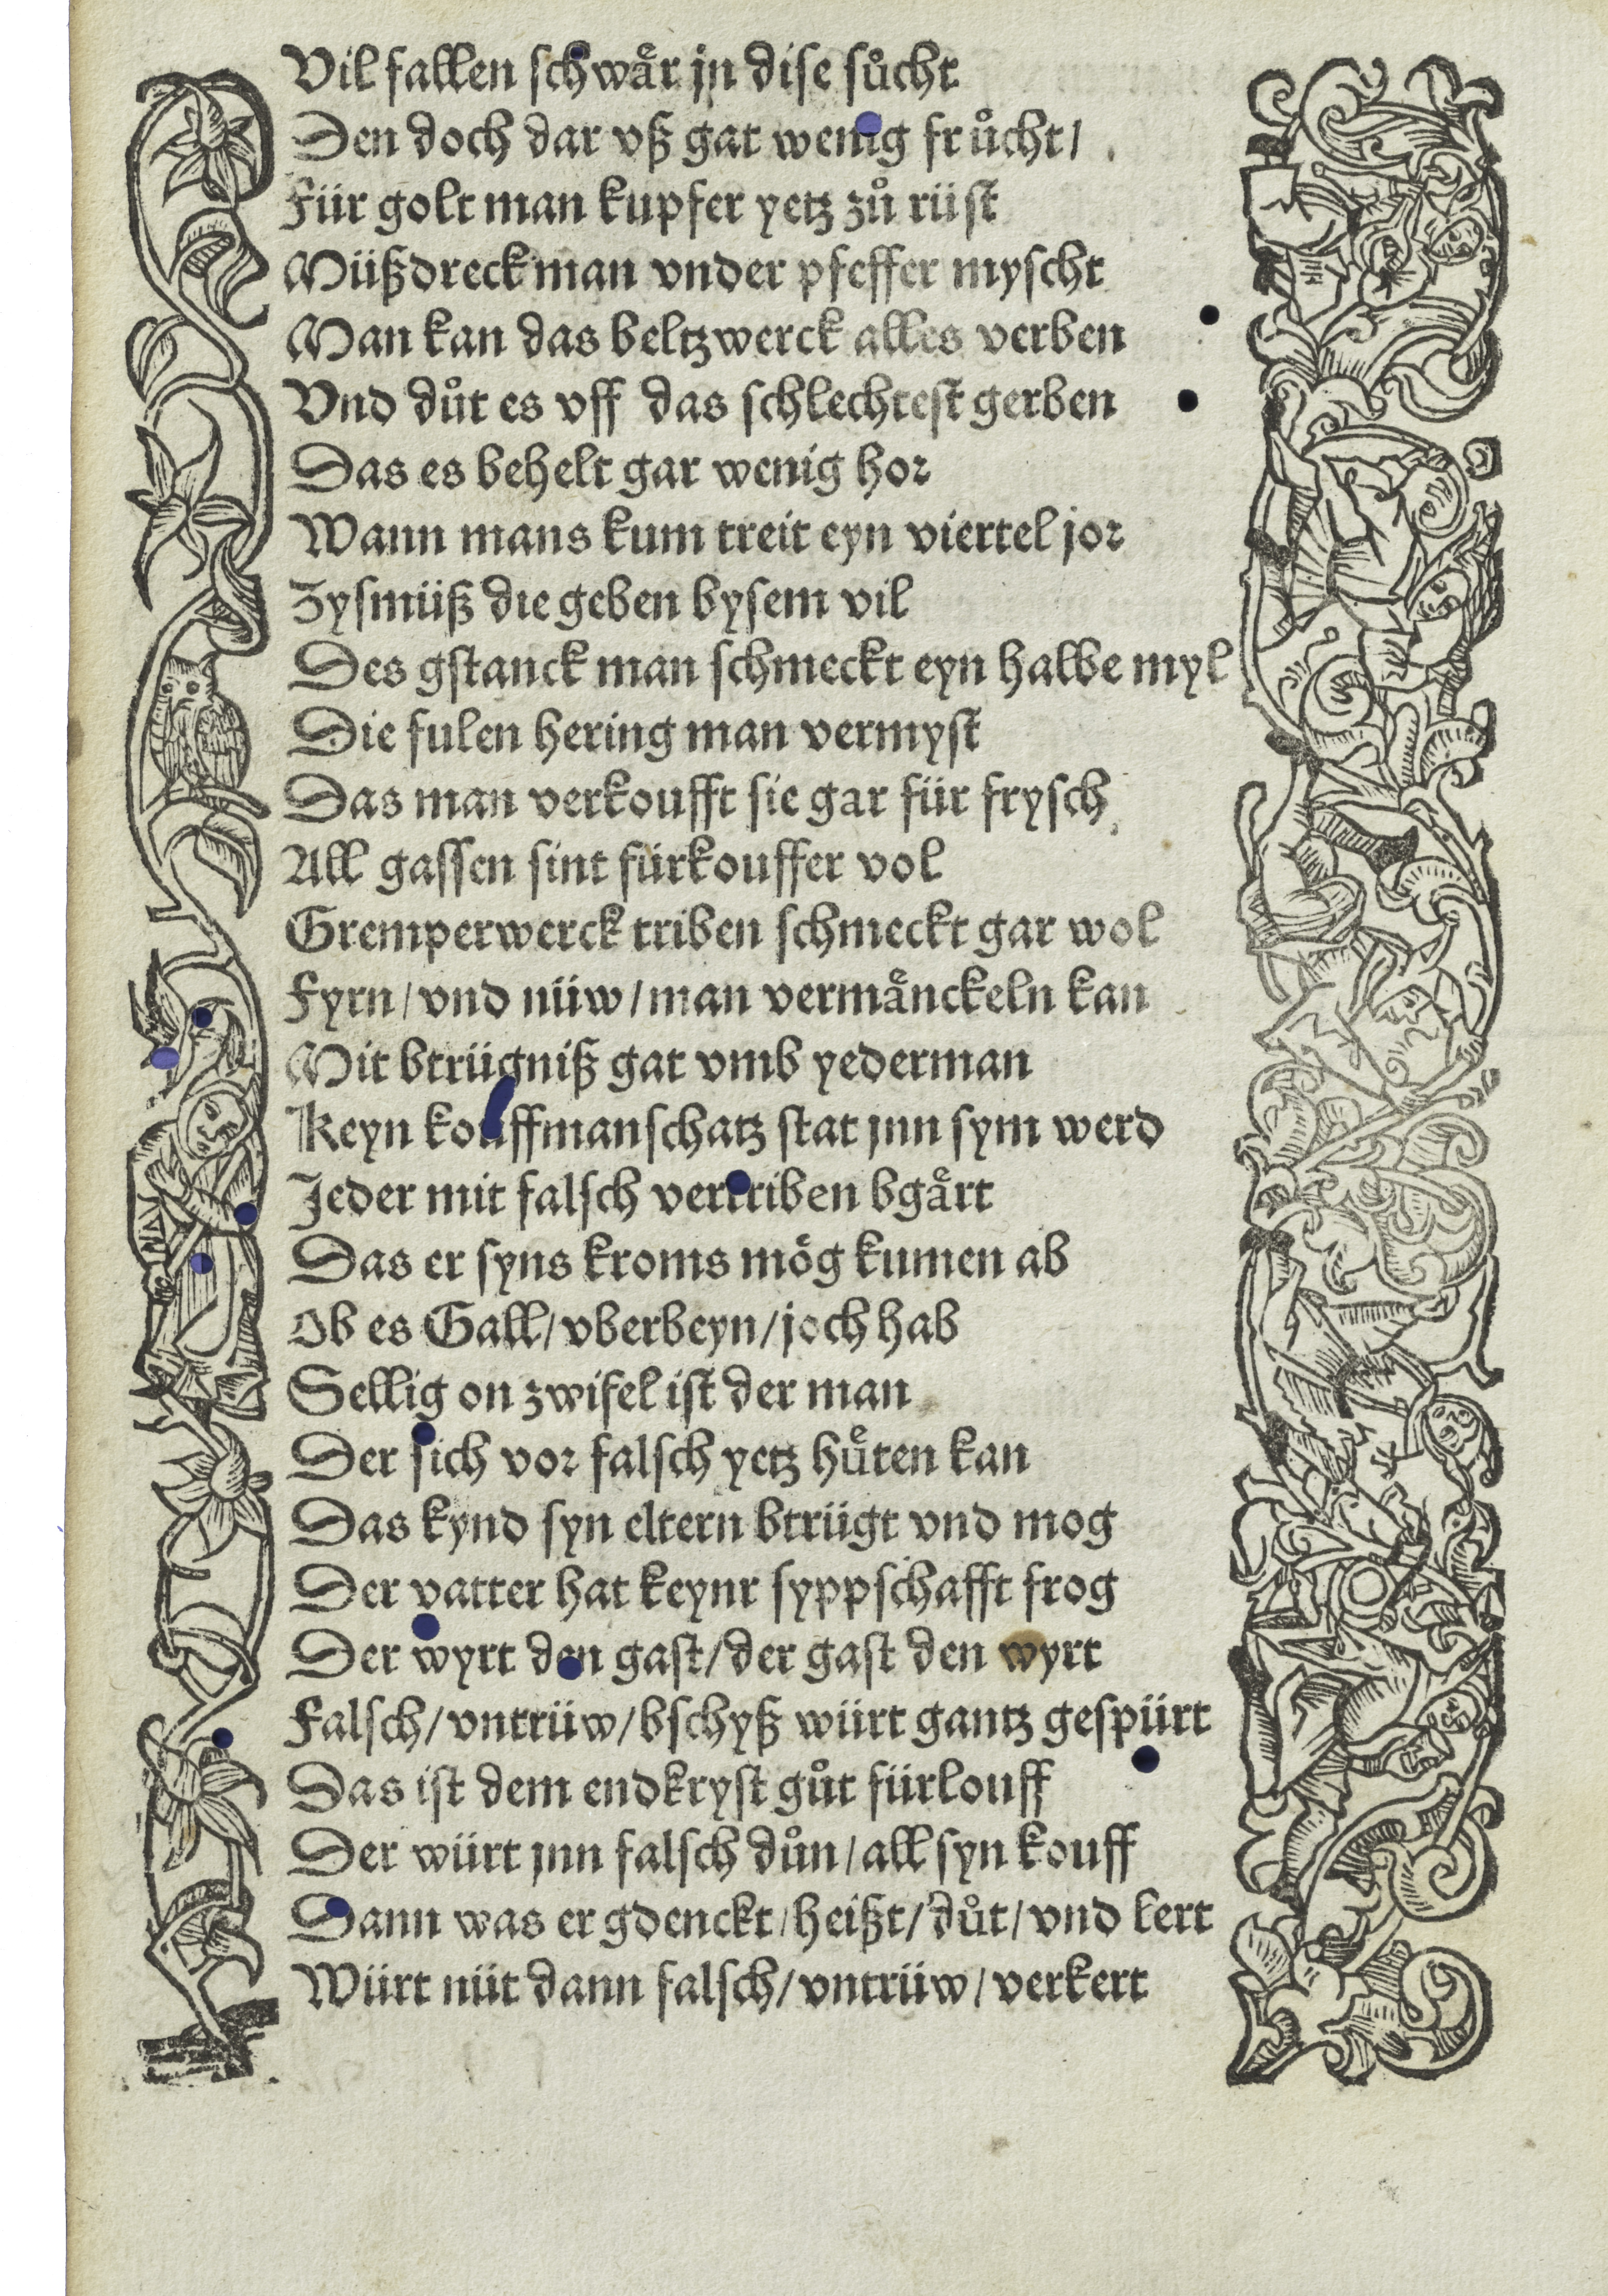 Vil fallen schwaͤr jn dise suͦcht
Den doch dar vß gat wenig fruͦcht/
Für golt man kupfer yetz zuͦ rüst
Müßdreck man vnder pfeffer myscht
Man kan das beltzwerck alles verben
Vnd duͦt es vff das schlechtest gerben
Das es behelt gar wenig hor
Wann mans kum treit eyn viertel jor
Zysmüß die geben bysem vil
Des gstanck man schmeckt eyn halbe myl
Die fulen hering man vermyst
Das man verkoufft sie gar für frysch
All gassen sint fürkouffer vol
Gremperwerck triben schmeckt gar wol
Fyrn/vnd nüw/man vermaͤnckeln kan
Mit btrügniß gat vmb yederman
Keyn kouffmanschatz stat jnn sym werd
Jeder mit falsch vertriben bgaͤrt
Das er syns kroms moͤg kumen ab
Ob es Gall/vberbeyn/joch hab
Sellig on zwifel ist der man
Der sich vor falsch yetz huͤten kan
Das kynd syn eltern btrügt vnd mog
Der vatter hat keynr syppschafft frog
Der wyrt den gast/der gast den wyrt
Falsch/vntrüw/bschyß würt gantz gespürt
Das ist dem endkryst guͦt fürlouff
Der würt jnn falsch duͦn/all syn kouff
Dann was er gdenckt/heißt/duͦt/vnd lert
Würt nüt dann falsch/vntrüw/verkert